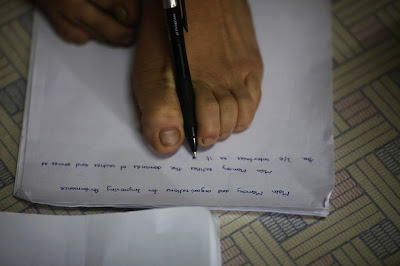 Main Memory and organisations for Improving Performance
Main Memory satisfies the demands of caches and serves as
the I/O interface as it